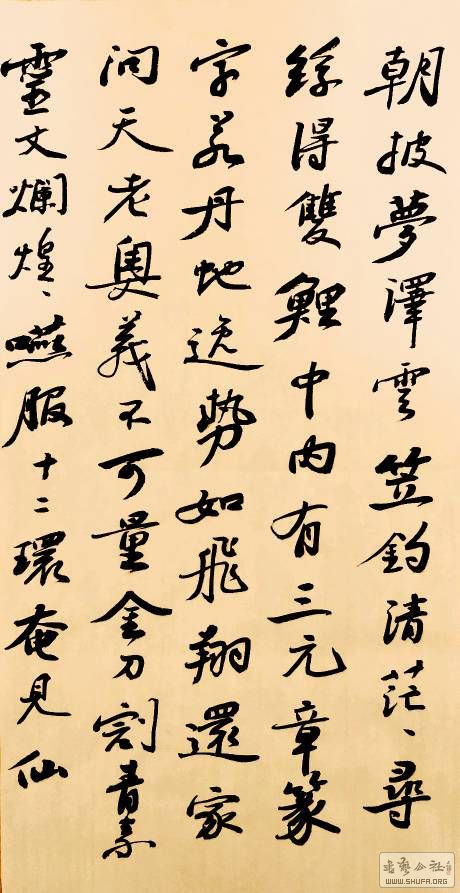 朝披夢澤雲笠釣清茫、尋
絲得雙鯉中內有三元章篆
字若丹虵逸勢如飛翔還家
問天老奧義不可量金刀割青素
靈文爛煌、嚥服十二環奄見仙
WWW.SHUFA.ORG